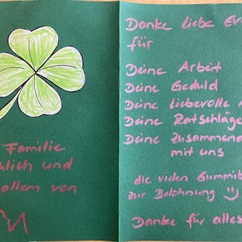 Familie
lich und
allem von
M
Danke liebe
für
Deine Arbeit
Deine Geduld
Deine liebevolle
Deine Ratschläge
Deine Zusammena
mit uns
die vielen Gummib
zur Belohnung
Danke für alles